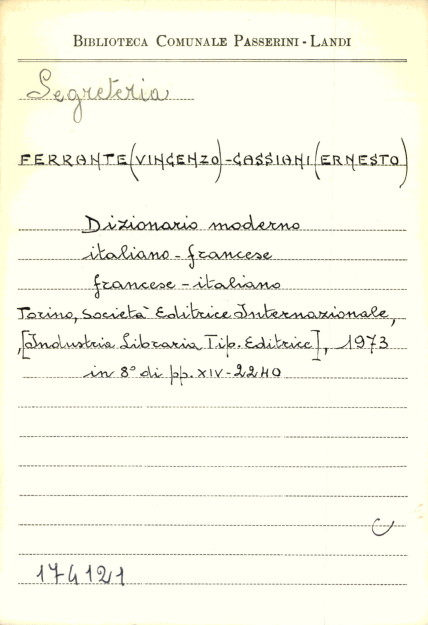 BIBLIOTECA COMUNALE PASSERINI - LANDI
Segreteria
FERRANTE (VINCENZO) - CASSIANI (ERNESTO)
Dizionario moderno
italiano - francese
francese - italiano
Torino, Società Editrice Internazionale,
,[Industria Libraria Tip. Editrice], 1973
in 8° di pp. XIV - 2240
174121